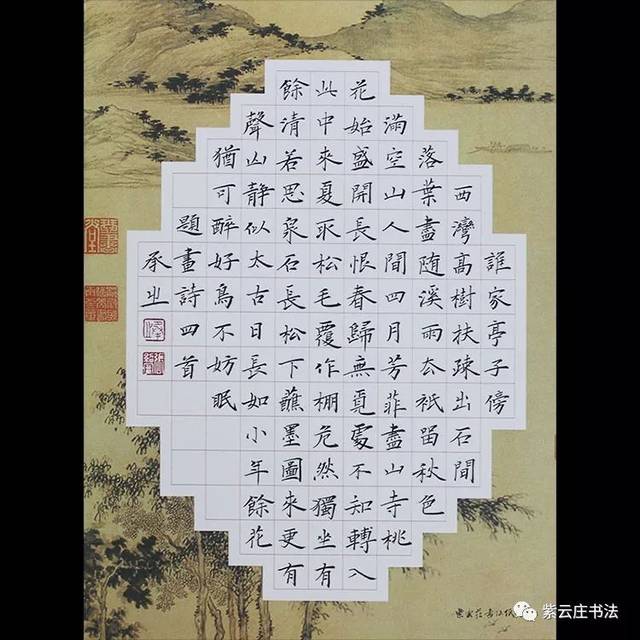 誰家亭子傍
西灣高樹扶疎出石間
落葉盡随溪雨去祇畱秋色
滿空山人間四月芳菲盡山寺桃
花始盛開長恨春歸無覓處不知轉入
此中來夏取松毛覆作棚危然獨坐有
餘清若思泉石長松下蘸墨圖來更有
聲山静似太古日長如小年餘花
猶可醉好鳥不妨眠
題畫詩四首
承之
紫云庄书法